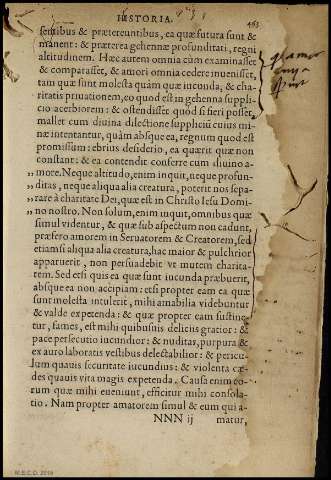 HISTORIA.
463
sentibus & prætereuntibus, ea quæ futura sunt &
manent: & præterea gehennæ profunditati, regni
altitudinem. Hæc autem omnia cum examinasset
& comparasset, & amori omnia cedere inuenisset,
tam quæ sunt molesta quàm quæ iucunda, & cha-
ritatis priuationem, eo quod est in gehenna supplî-
cio acerbiorem: & ostendisset quòd si fieri posset,
mallet cum diuina dilectione suppliciū cuius mi-
næ intentantur, quàm absque ea, regnum quod est
promissum: ebrius desiderio, ea quærit quæ non
constant: & ea contendit conferre cum diuino a-
more. Neque altitudo, enim inquit, neque profun-
„ ditas, neque aliqua alia creatura, poterit nos sepa-
„ rare à charitate Dei, quæ est in Christo Iesu Domi-
„ no nostro. Non solum, enim inquit, omnibus quæ
simul videntur, & quæ sub aspectum non cadunt,
præfero amorem in Seruatorem & Creatorem, sed
etiamsi aliqua alia creatura, hac maior & pulchrior
apparuerit, non persuadebit vt mutem charita-
tem. Sed etsi quis ea quæ sunt iucunda præbuerit,
absque ea non accipiam: etsi propter eam ea quæ
sunt molesta intulerit, mihi amabilia videbuntur
& valde expetenda: & quæ propter eam sustine-
tur, fames, est mihi quibusuis deliciis gratior: &
pace persecutio iucundior: & nuditas, purpura &
ex auro laboratis vestibus delectabilior: & pericu-
lum quauis securitate iucundius: & violenta cæ-
des quauis vita magis expetenda. Causa enim eo-
rum quæ mihi eueniunt, efficitur mihi consola-
tio. Nam propter amatorem simul & eum qui a-
NNN ij
matur,
M.E.C.D. 2016